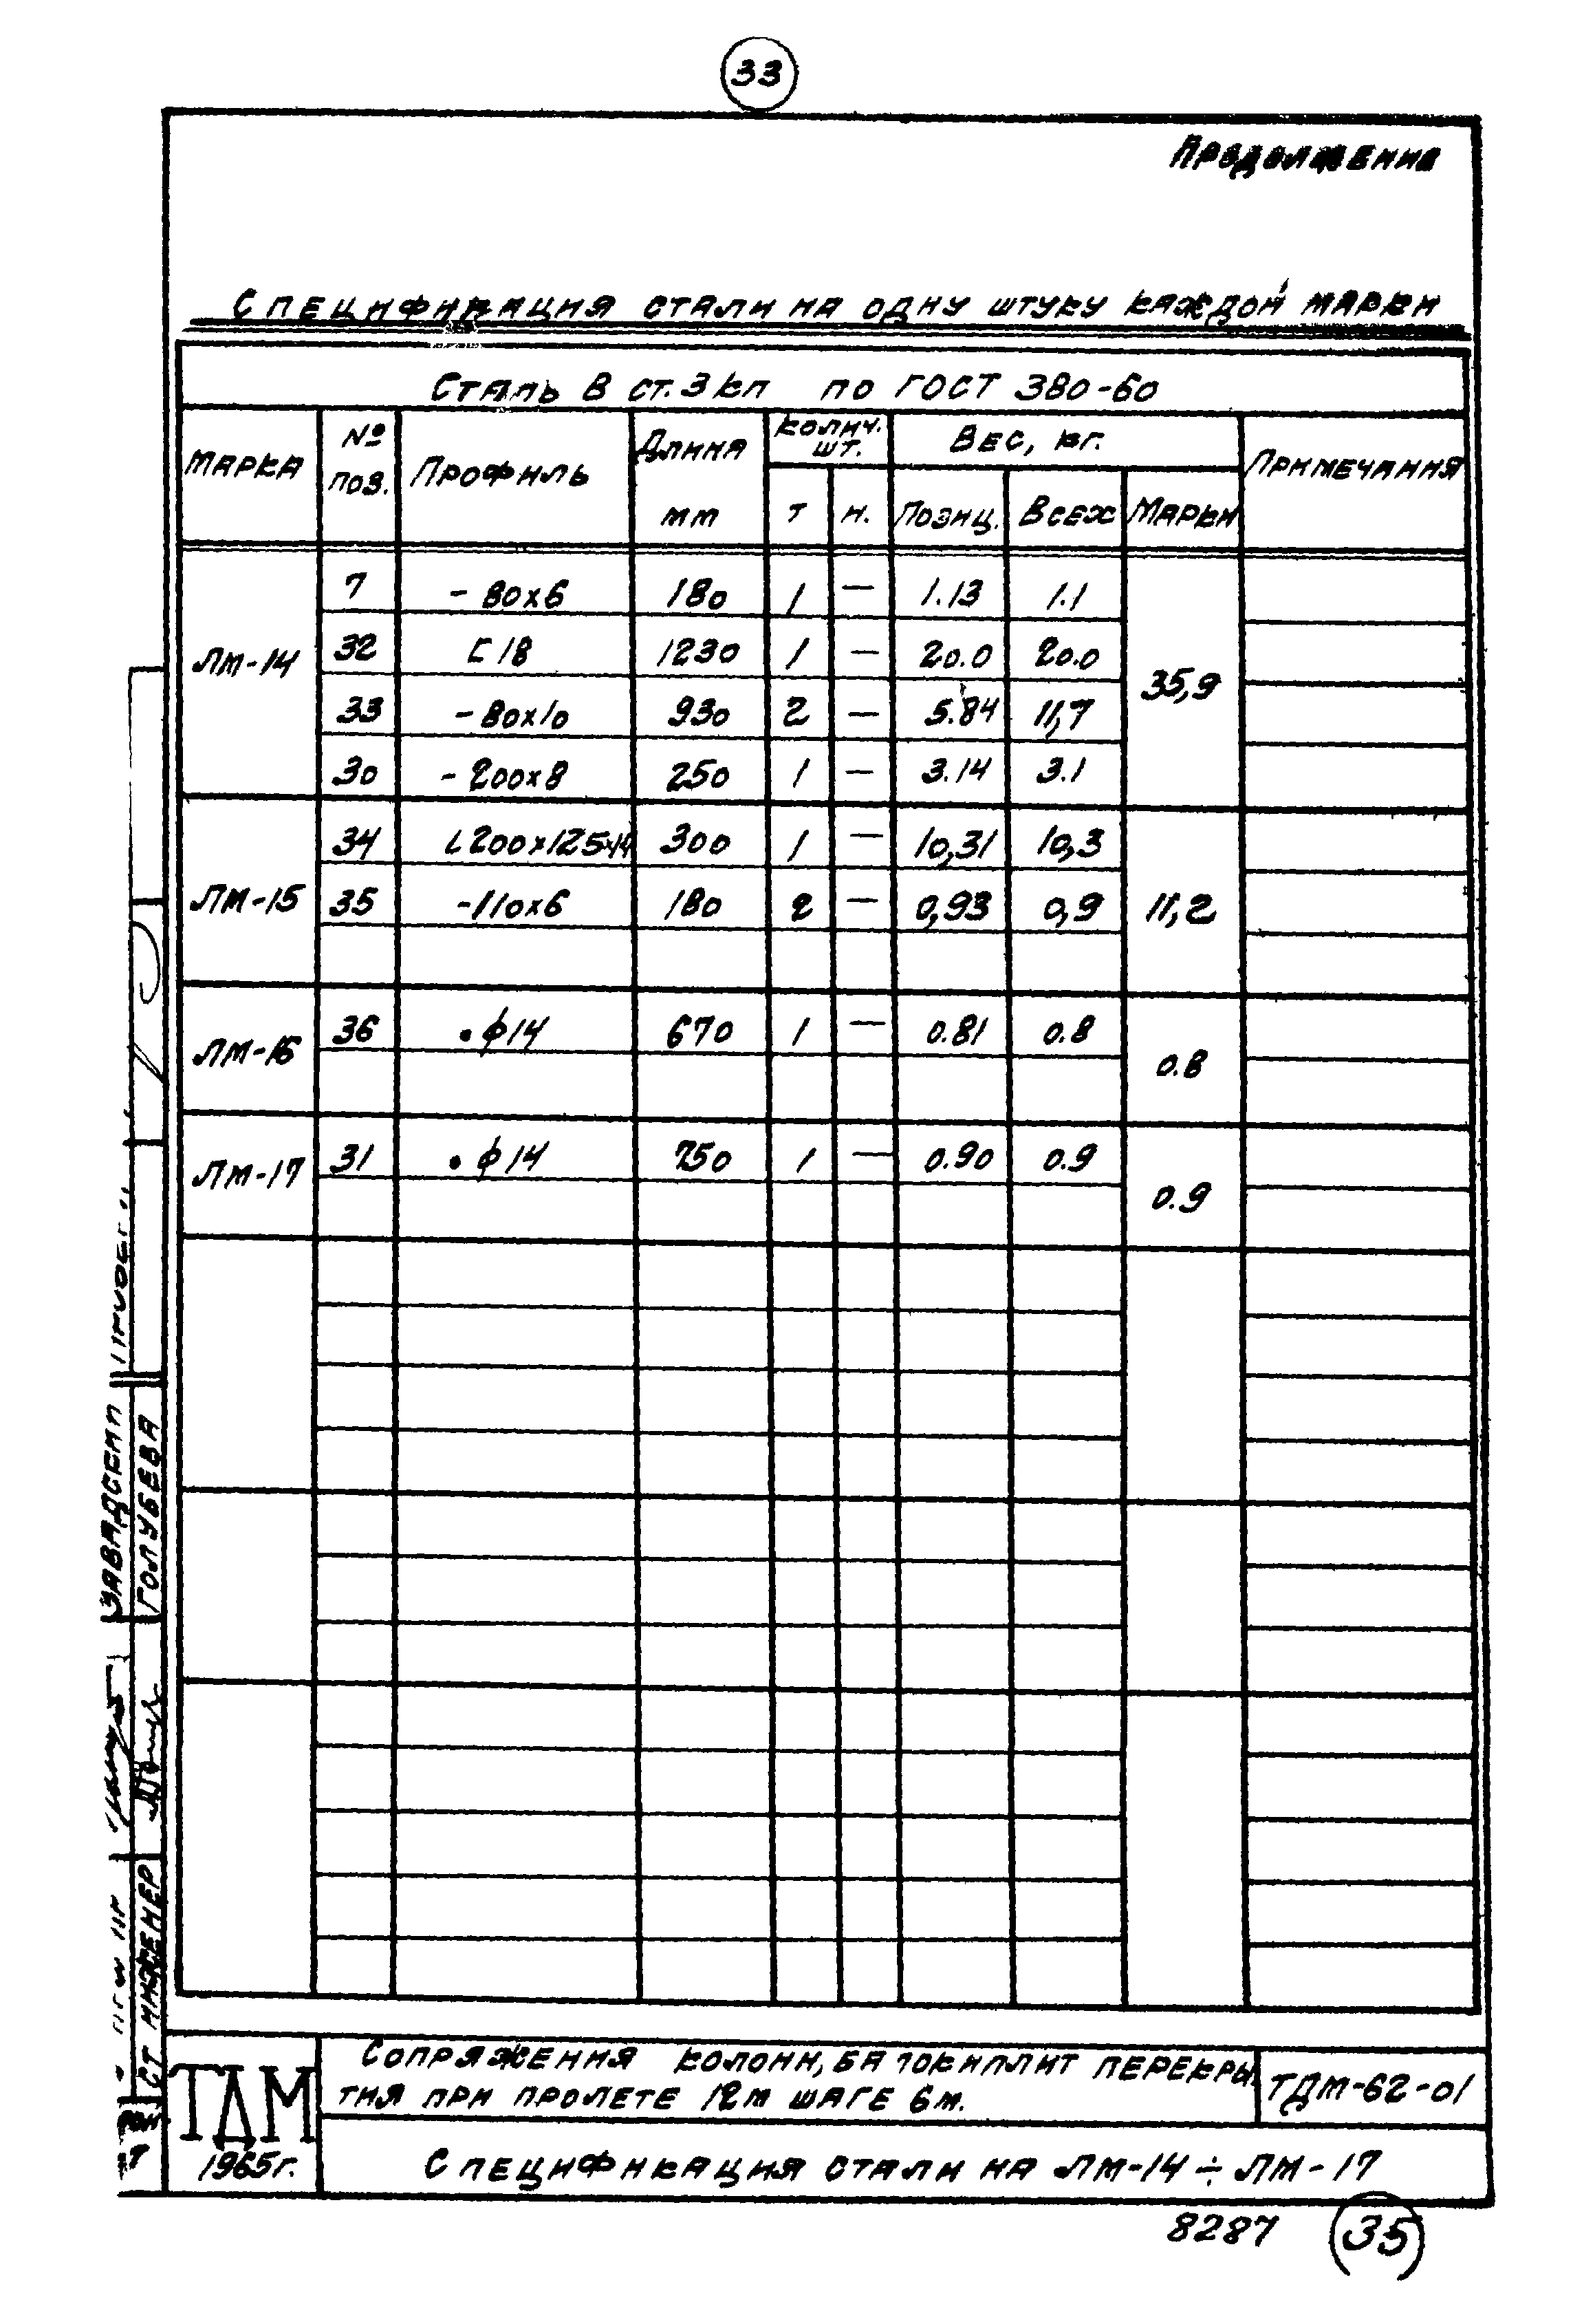 33
Продолжение
Спецификация стали на одну штуку каждой марки
Сталь В ст.3кп по ГОСТ 380-60
Марка № поз. Профиль Длина мм Колич. шт. Вес, кг. Примечания
т н. Позиц. Всех Марки
ЛМ-14 35,9
7 -80x6 180 1 — 1.13 1.1
32 [18 1230 1 — 20.0 20.0
33 -80x10 930 2 — 5.84 11,7
30 -200x8 250 1 — 3.14 3.1
ЛМ-15 11,2
34 L200x125x14 300 1 — 10,31 10,3
35 -110x6 180 2 — 0,93 0,9
ЛМ-16 0.8
36 •ϕ14 670 1 — 0.81 0.8
ЛМ-17 0.9
31 •ϕ14 750 1 — 0.90 0.9
Голубева
Ст инженер
ТДМ
1965г.
Сопряжения колонн, балок и плит перекры
тия при пролете 12м шаге 6м.
ТДМ-62-01
Спецификация стали на ЛМ-14 ÷ ЛМ-17
8287 35